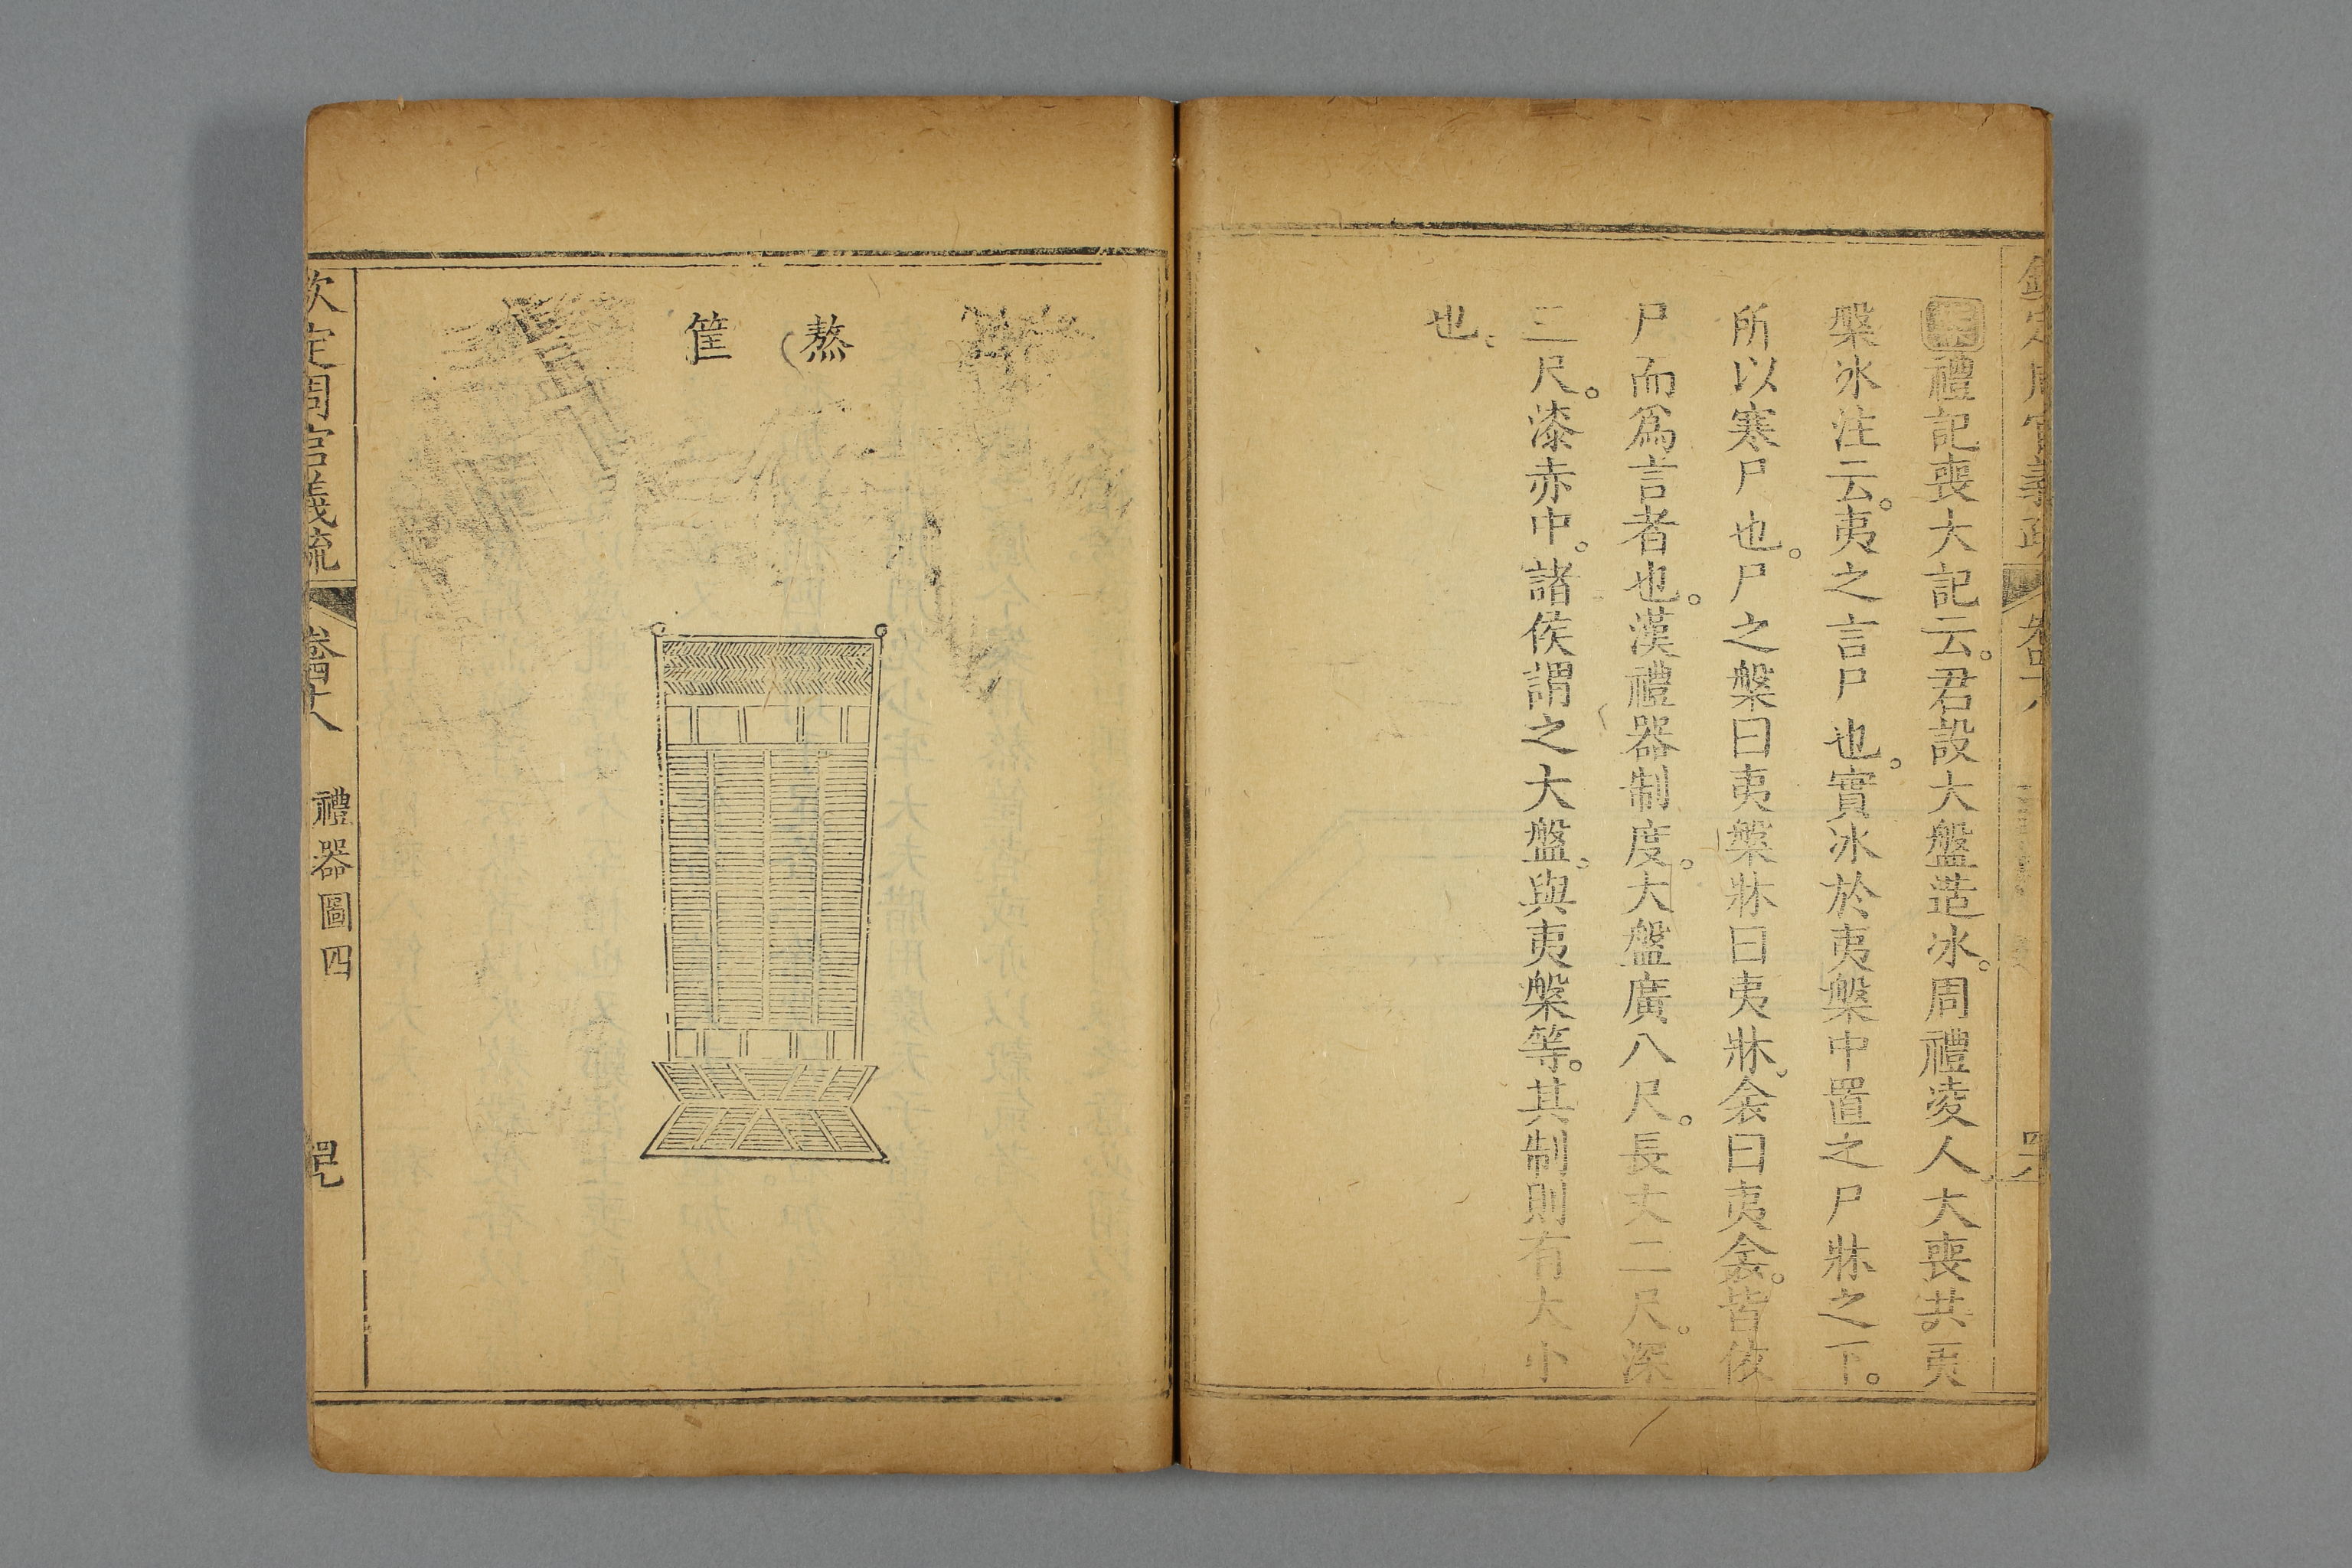 禮記喪大記云。君設大盤造冰。周禮凌人大喪共夷
槃冰注云。夷之言尸也。實冰於夷槃中置之尸牀之下。
所以寒尸也。尸之槃曰夷槃牀曰夷牀。衾曰夷衾。皆依
尸而爲言者也。漢禮器制度。大盤廣八尺。長丈二尺。深
三尺。漆赤中。諸侯謂之大盤。與夷槃等。其制則有大小
也。
熬筐
欽定周官義疏 卷四十八 禮器圖四